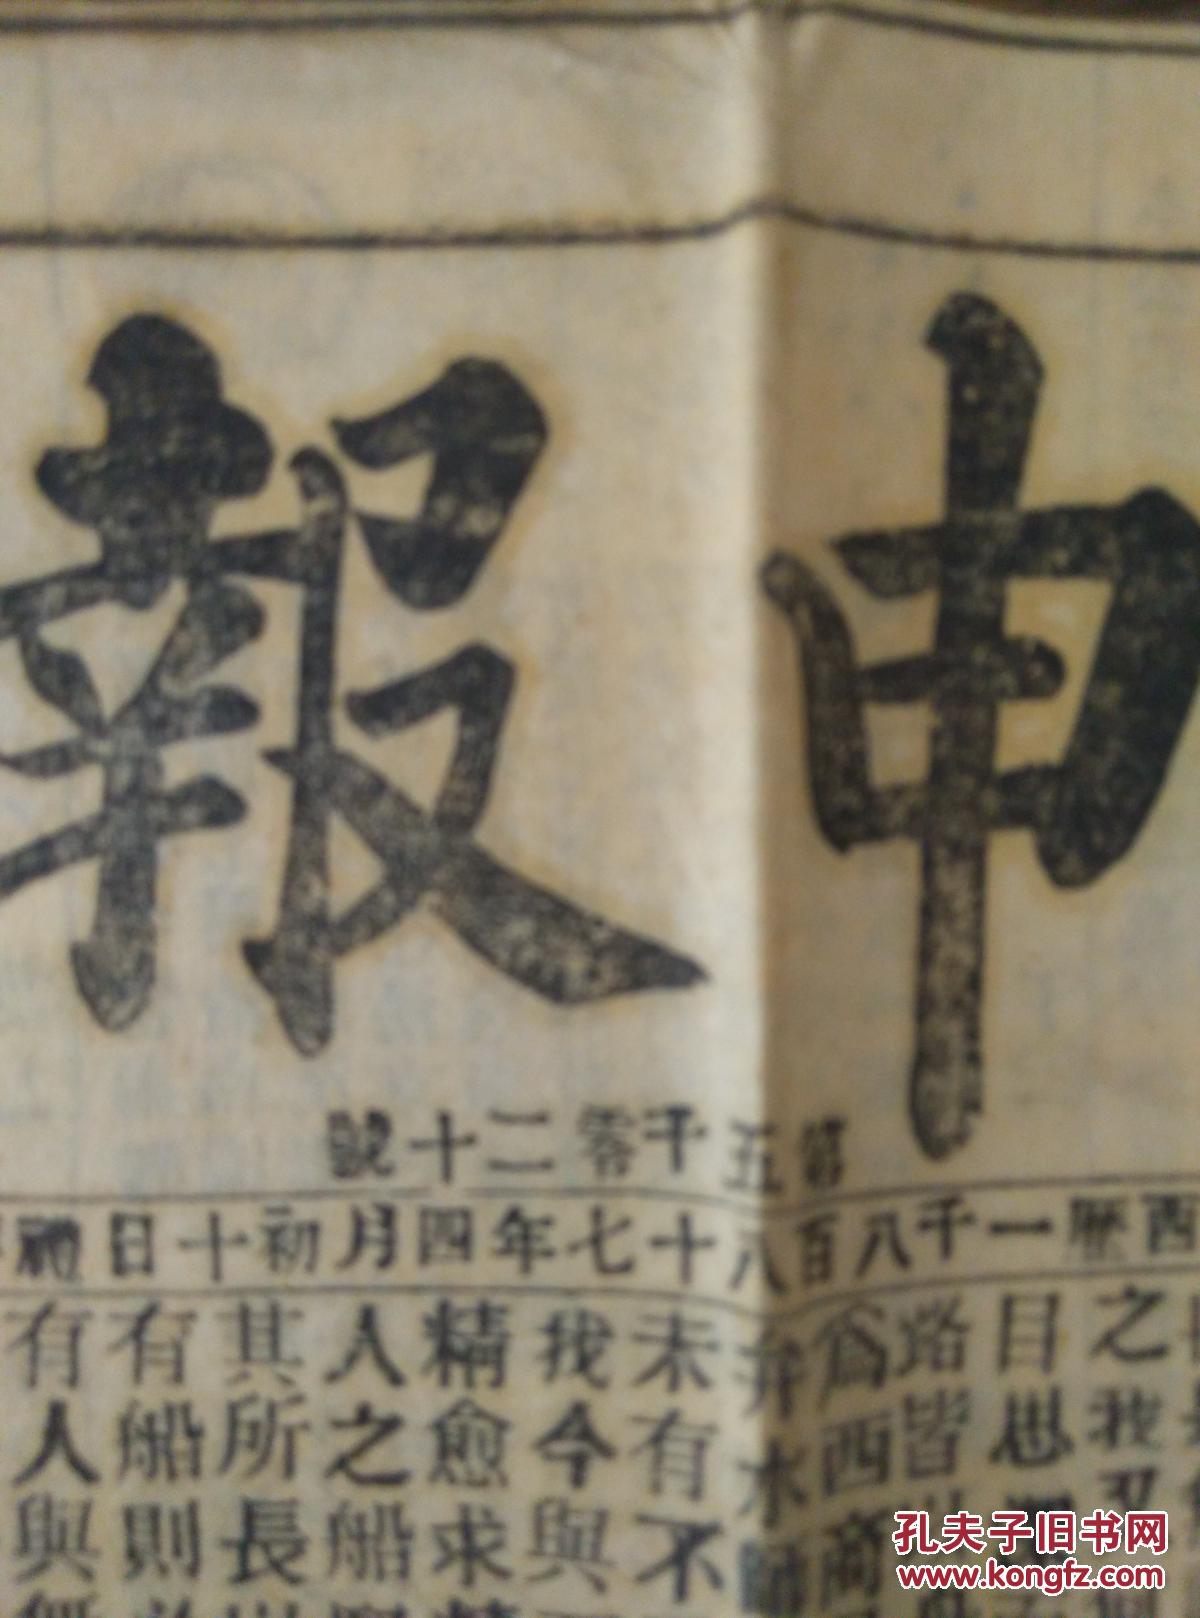 申報
第五千零二十號
西歷一千八百八十七年四月初十日禮
之我
目思
路皆
爲西商
弁水師
未有不
我今與
精愈求
人之船
其所長
有船則
有人與
孔夫子旧书网
www.kongfz.com